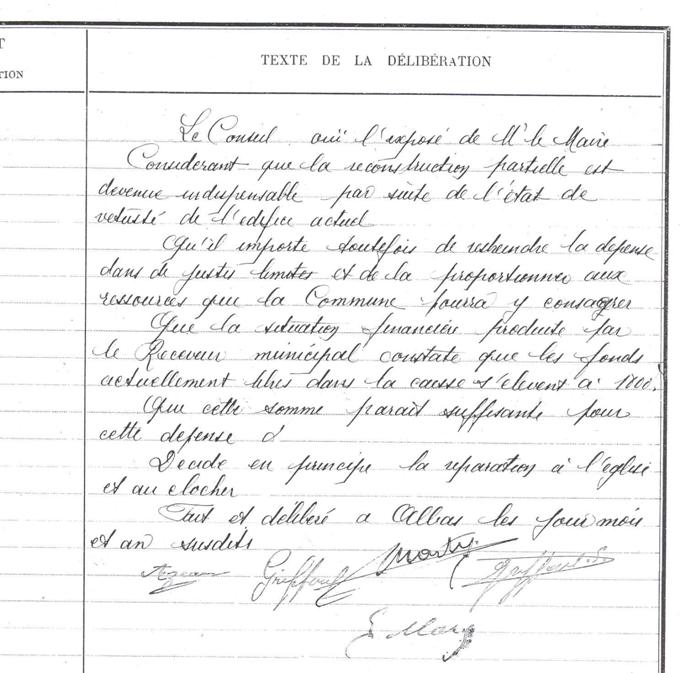 T
TION
TEXTE DE LA DÉLIBÉRATION
Le Conseil ouï l'exposé de Mr le Maire
Considerant que la reconstruction partielle est
devenue indispensable par suite de l'état de
vetusté de l'edifice actuel
Qu'il importe toutefois de restreindre la depense
dans de justes limites et de la proportionner aux
ressources que la Commune pourra y consacrer
Que la situation financière produite par
le Receveur municipal constate que les fonds
actuellement libres dans la caisse s'elevent à
Que cette somme parait suffisante pour
cette depense
Decide en principe la reparation à l'eglise
et au clocher
Fait et délibéré a Albas les jour mois
et an susdits
Griffoul
Marty